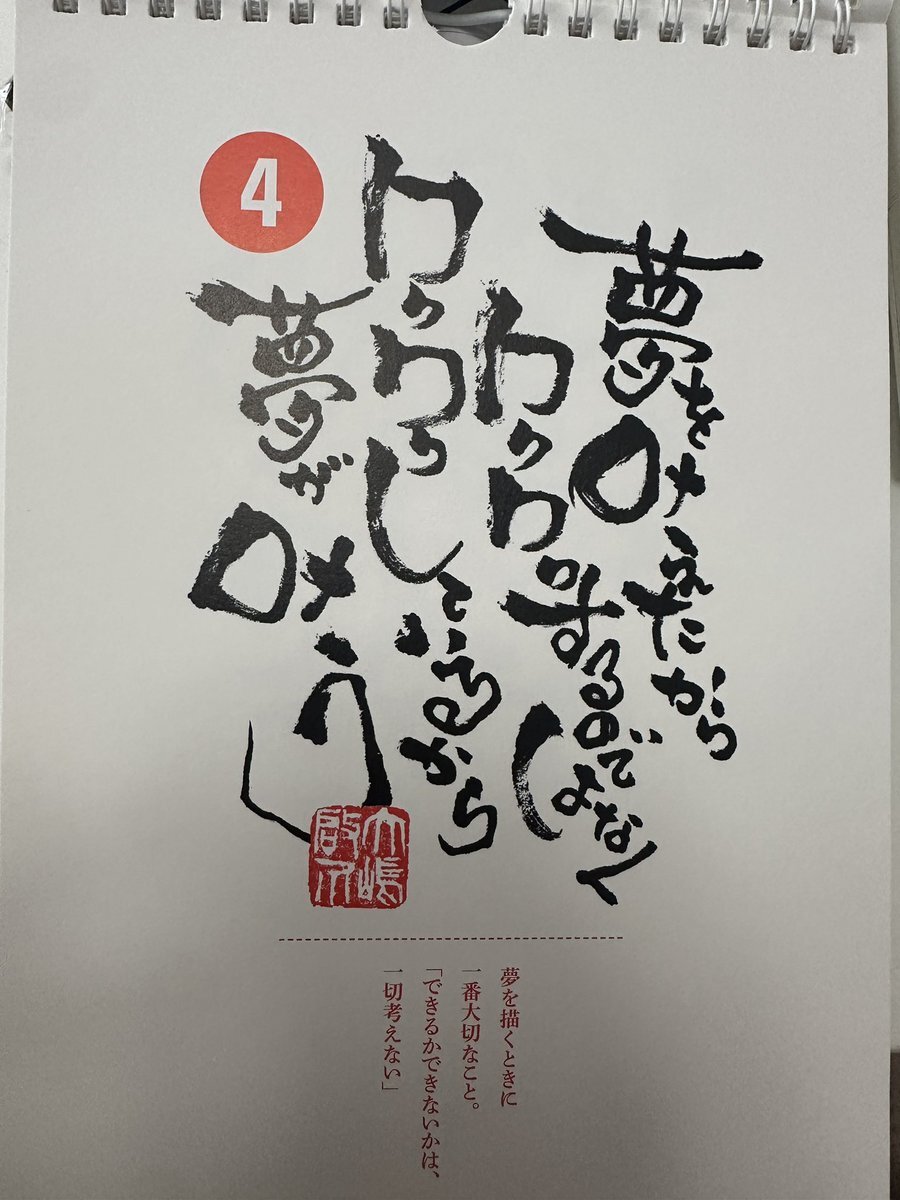 4
夢を叶えたから
ワクワクするのではなく
ワクワクしているから
夢が叶う
大嶋
啓介
夢を描くときに
一番大切なこと。
「できるかできないかは、
一切考えない」